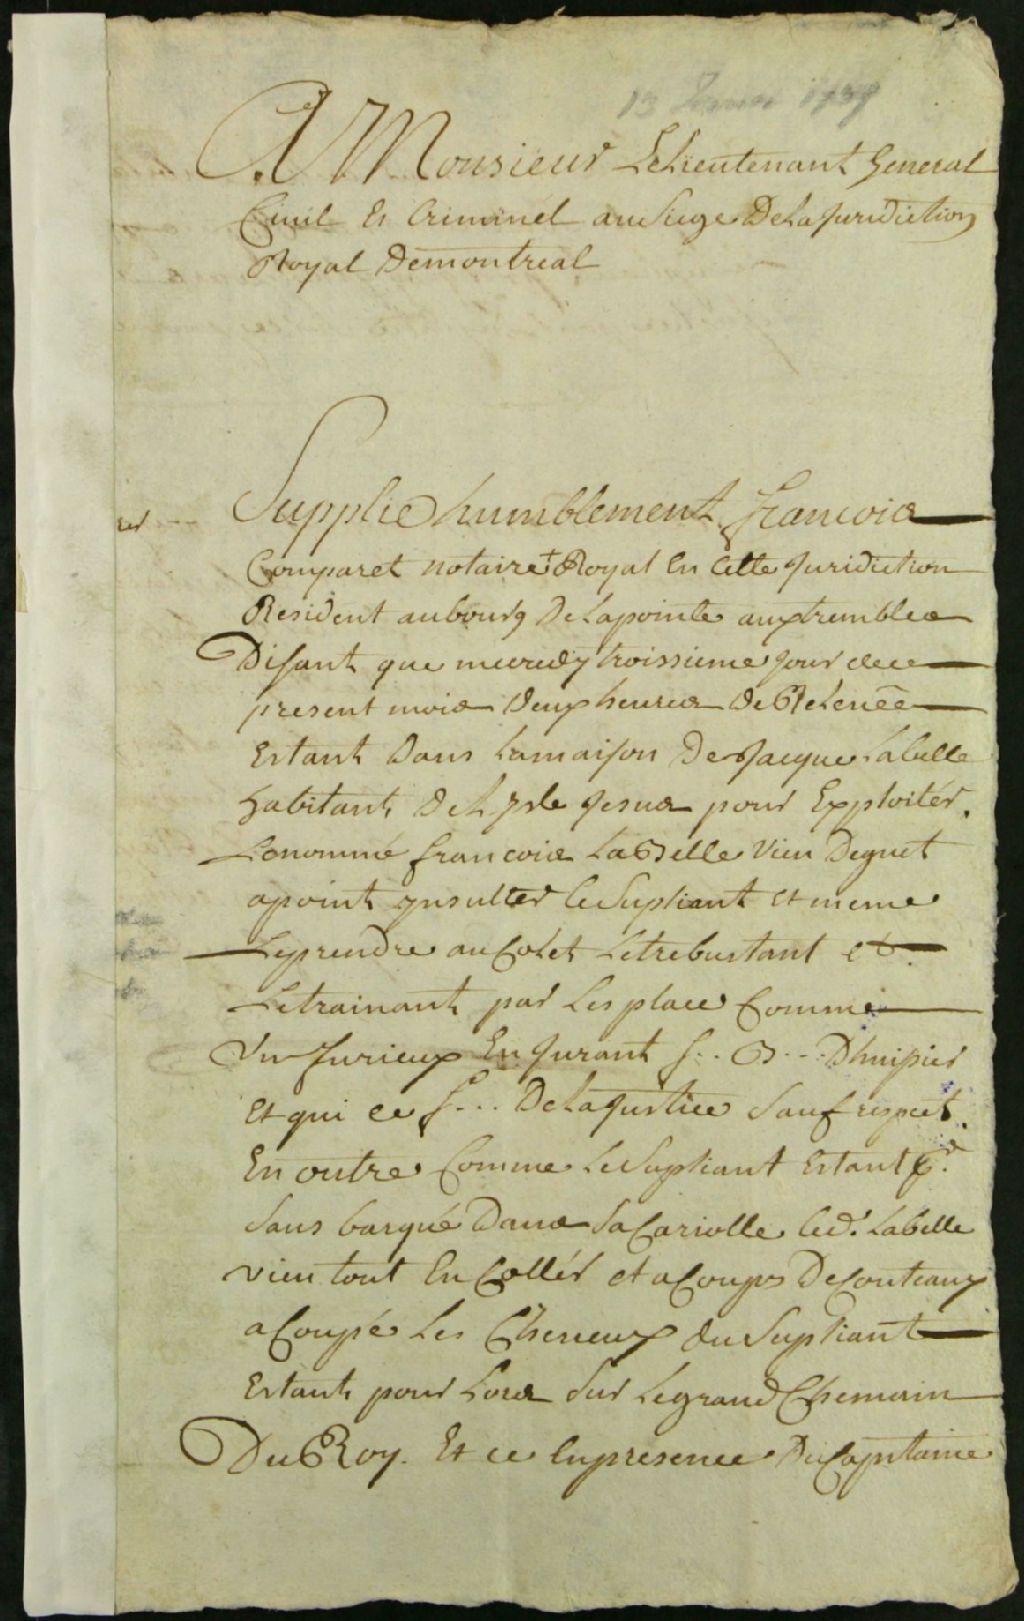 13 Janvier 1739
A Monsieur Le Lieutenant General
Ciuil Et Criminel au Siege De La Juridiction
Royal De montreal
Supplie humblement francois
Comparet notaire Royal En Cette Juridiction
Resident au bourg De La pointe aux trembles
Disant que mecredy troissieme jour de ce
present mois deux heures de Releuée
Estant Dans La maison De Jacque Labelle
habitant De L jsle Jesus pour Exploiter
Le nommé francois LaBelle Vien De guet
apoint ynsulter Le Supliant et meme
Le prendre au Colet Le trebustant et
Le trainant par Les place Comme
Vn furieux En Jurant f... B... Dhuissier
Et qui ce f... De La Justice Sauf respect.
En outre Comme Le Supliant Estant
Sans barqué Dans Sa Cariolle Le d. Labelle
vien tout En Collér et a Coups De Couteaux
a Coupé Les Cheueux du Supliant
Estant pour Lors Sur Le grand Chemain
Du Roy. Et ce En presence Du Capitaine